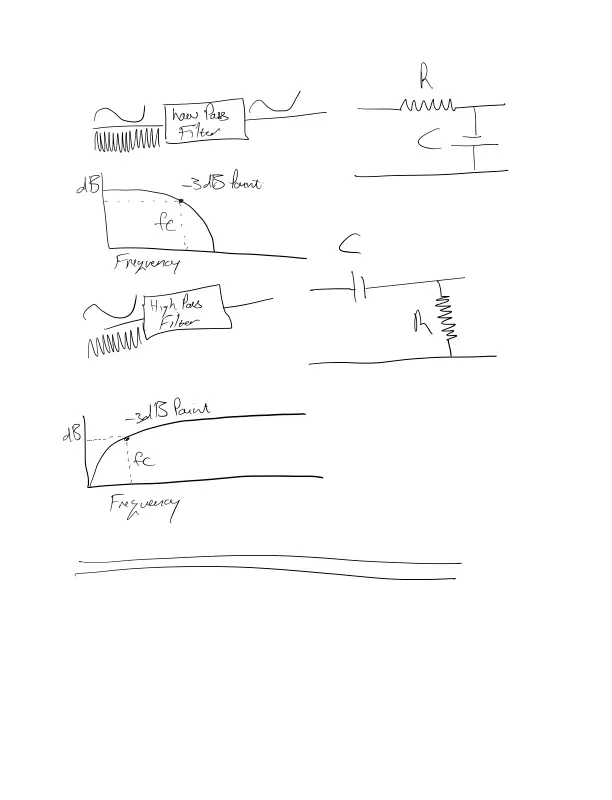 R
Low Pass
Filter
C
dB
-3dB Point
fc
Frequency
C
High Pass
Filter
R
-3dB Point
dB
fc
Frequency